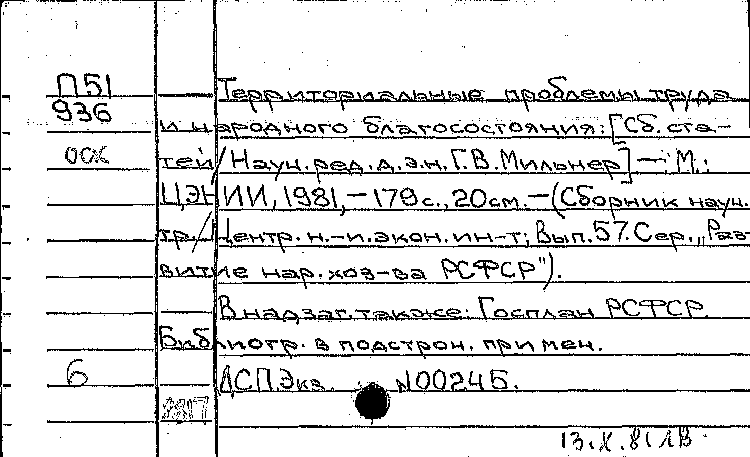 П51 Территориальные проблемы труда
936 и народного благосостояния: [Сб. ста-
тей / Науч. ред. д.э.н. Г.В. Мильнер] — М.:
ЦЭНИИ, 1981, – 179с., 20см. – (Сборник науч.
тр. / Центр. н.-и. экон. ин-т; Вып. 57. Сер. „Раз-
витие нар. хоз-ва РСФСР").
В надзаг. также: Госплан РСФСР.
Библиогр. в подстрон. примеч.
6 ДСП. Экз. №00245.
13.X.81 ЛВ